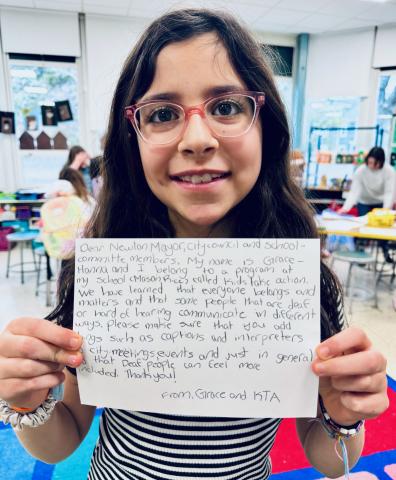 Dear Newton Mayor, city council and school-
committe members. My name is Grace-
Hanna and I belong to a program at
my school (Mason Rice) called Kids Take Action.
We have learned that everyone belongs and
matters and that some people that are deaf
or hard of hearing communicate in different
ways. please make sure that you add
things such as captions and interpreters
city meetings, events and just in general
that Deaf people can feel more
included. Thank you!
From, Grace and KTA